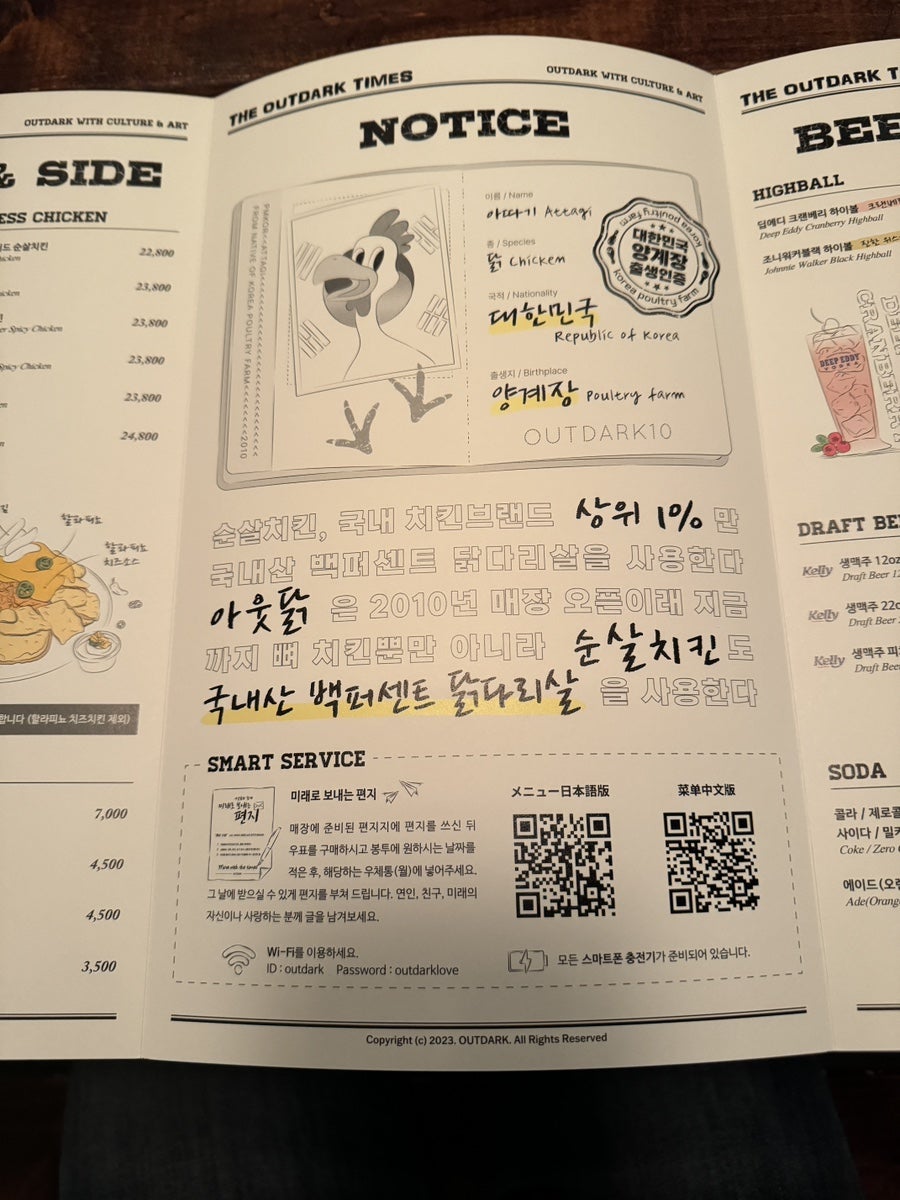 OUTDARK WITH CULTURE & ART
& SIDE
ESS CHICKEN
드 순살치킨
22,800
23,800
er Spicy Chicken
23,800
Spicy Chicken
23,800
23,800
24,800
할라피뇨
할라피뇨
치즈소스
합니다 (할라피뇨 치즈치킨 제외)
7,000
4,500
4,500
3,500
THE OUTDARK TIMES
OUTDARK WITH CULTURE & ART
NOTICE
PMKOR<<ATTAGI<<<<<<<<<<<<<<<<
FROM NATIVE OF KOREA POULTRY FARM<<<<<<<<2010
이름 / Name
아따기 Attagi
종 / Species
닭 Chicken
국적 / Nationality
대한민국
Republic of Korea
출생지 / Birthplace
양계장 Poultry farm
OUTDARK10
korea poultry farm
대한민국
양계장
출생인증
korea poultry farm
순살치킨, 국내 치킨브랜드 상위 1% 만
국내산 백퍼센트 닭다리살을 사용한다
아웃닭 은 2010년 매장 오픈이래 지금
까지 뼈 치킨뿐만 아니라 순살치킨도
국내산 백퍼센트 닭다리살 을 사용한다
SMART SERVICE
미래로 보내는
편지
미래로 보내는 편지
매장에 준비된 편지지에 편지를 쓰신 뒤
우표를 구매하시고 봉투에 원하시는 날짜를
적은 후, 해당하는 우체통(월)에 넣어주세요.
그 날에 받으실 수 있게 편지를 부쳐 드립니다. 연인, 친구, 미래의
자신이나 사랑하는 분께 글을 남겨보세요.
メニュー日本語版
菜单中文版
Wi-Fi를 이용하세요.
ID : outdark Password : outdarklove
모든 스마트폰 충전기가 준비되어 있습니다.
Copyright (c) 2023. OUTDARK. All Rights Reserved
THE OUTDARK T
BEE
HIGHBALL
딥에디 크랜베리 하이볼
Deep Eddy Cranberry Highball
조니워커블랙 하이볼
Johnnie Walker Black Highball
DEEP EDDY
VODKA
DEEP EDDY
CRANBERRY
DRAFT BE
Kelly 생맥주 12oz
Draft Beer 12
Kelly 생맥주 22o
Draft Beer
Kelly 생맥주 피
Draft Bee
SODA
콜라 / 제로콜
사이다 / 밀키
Coke / Zero
에이드 (오렌
Ade(Orang